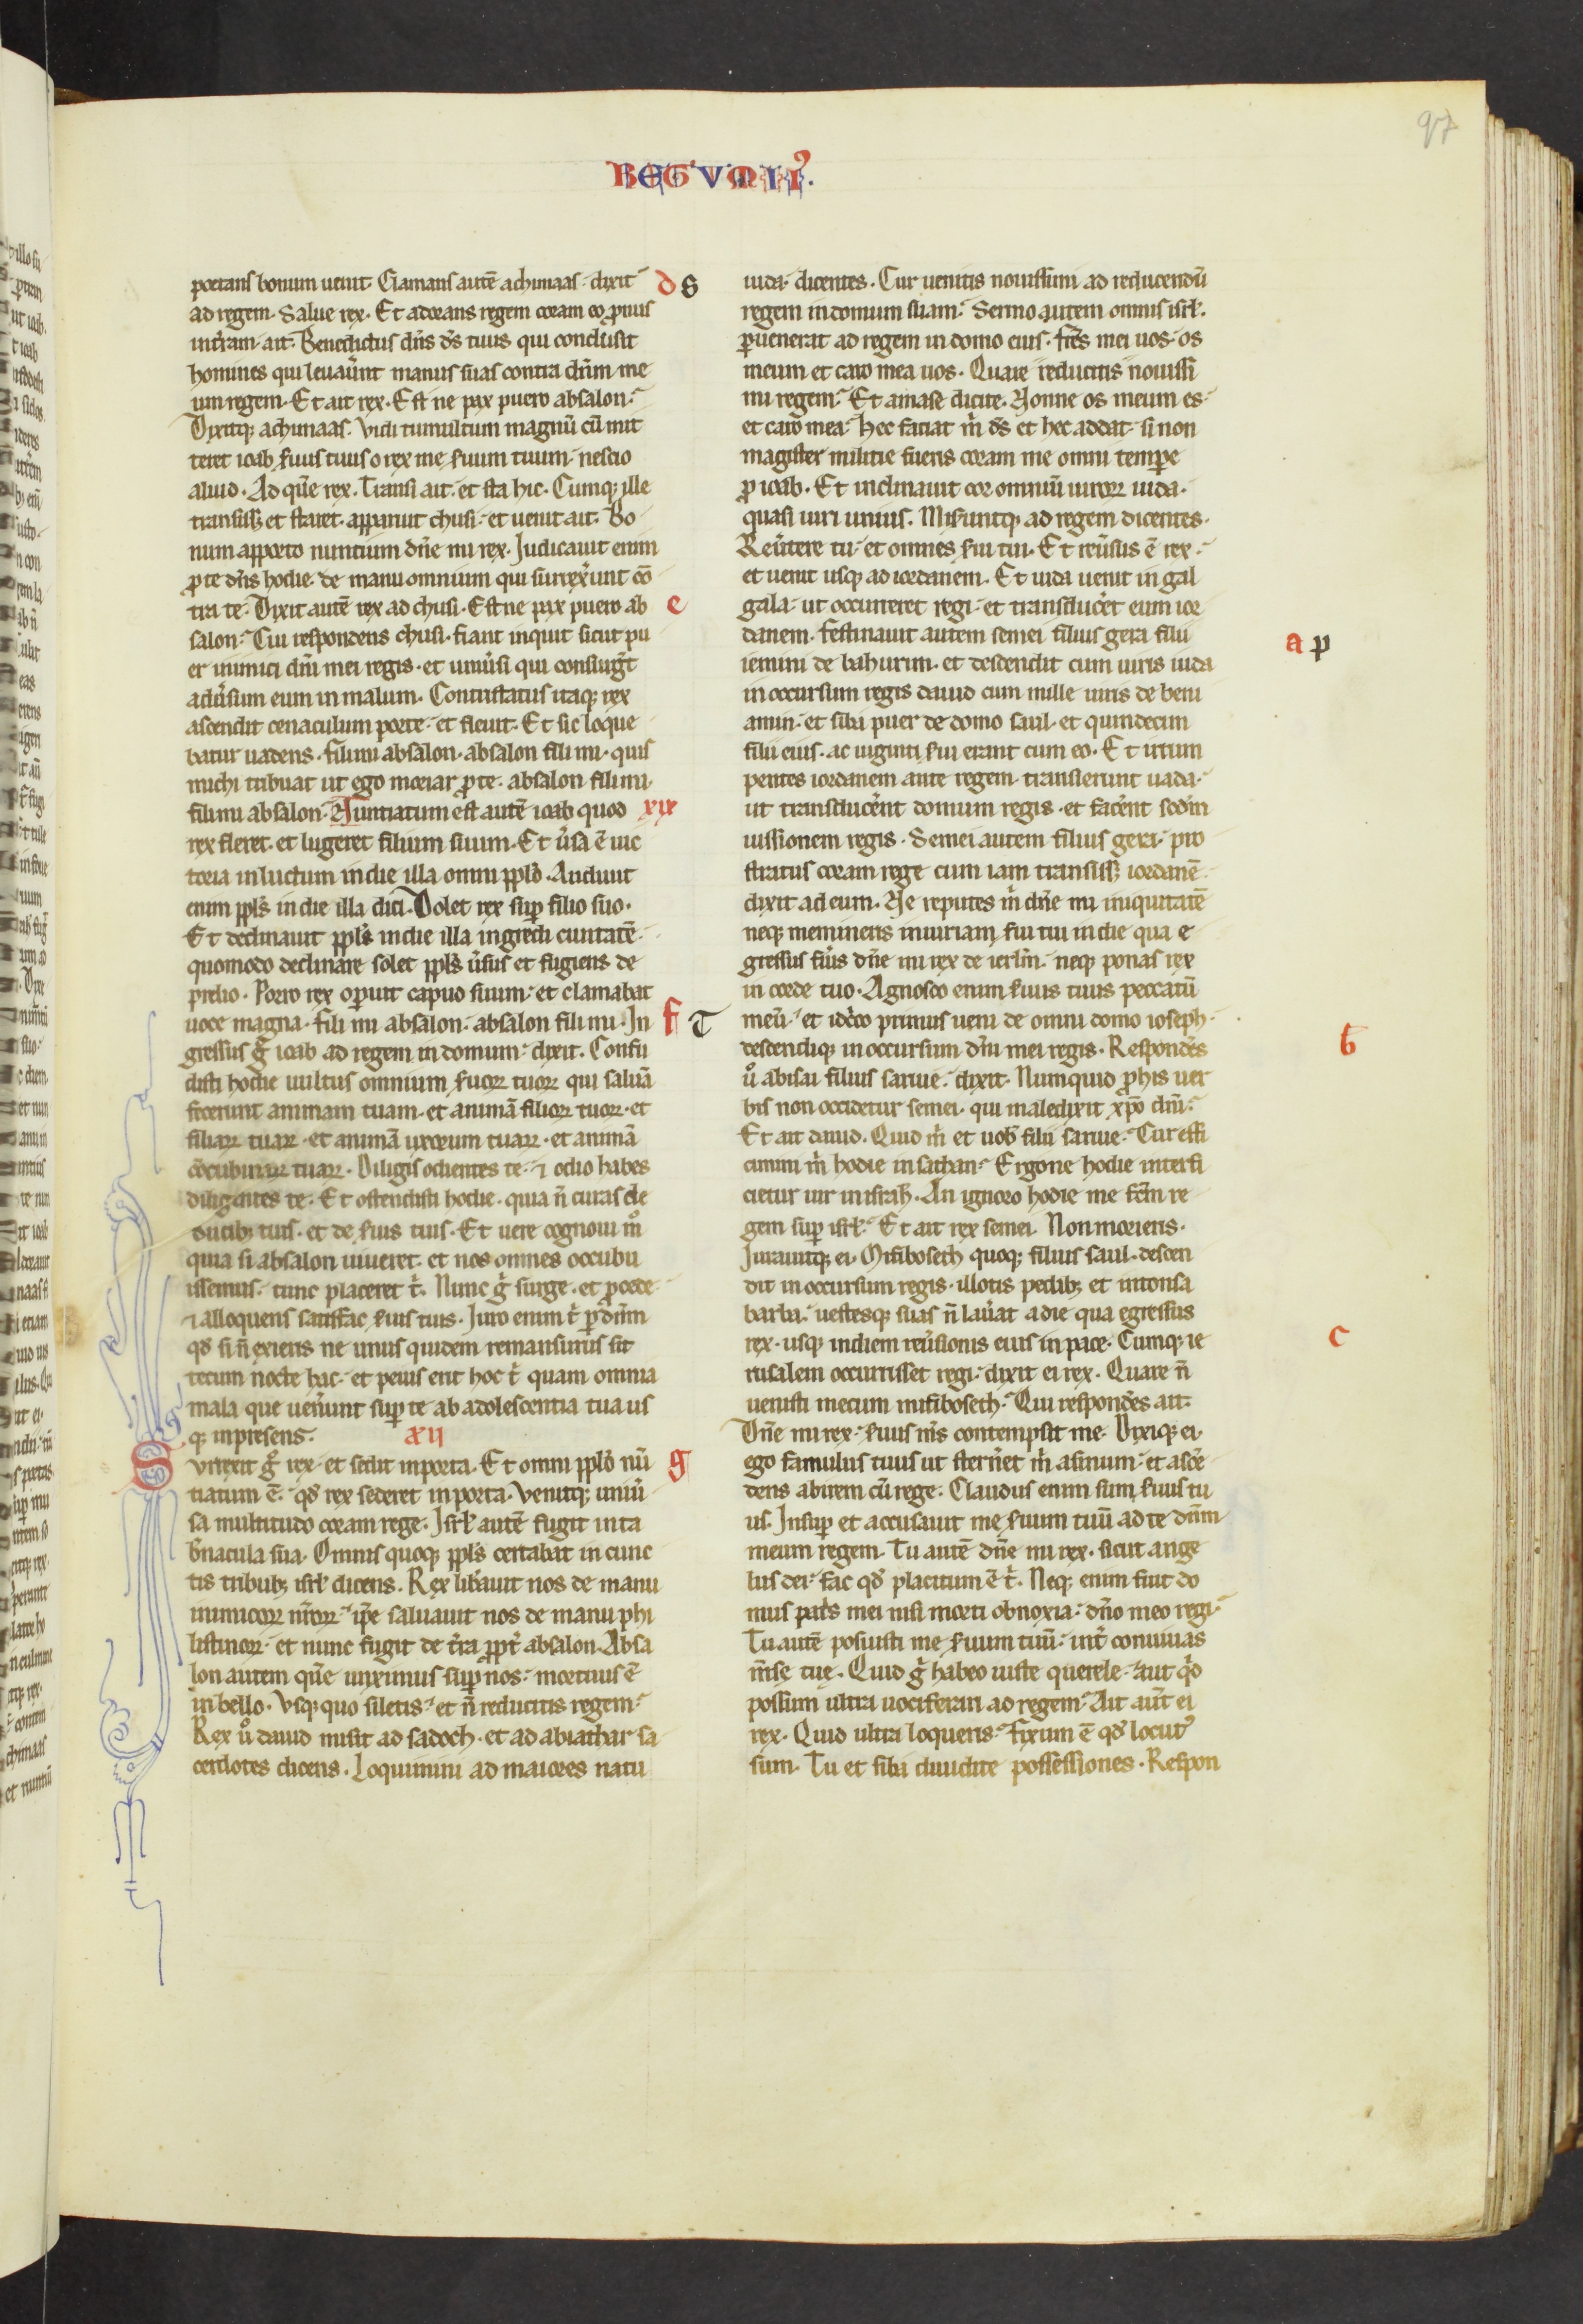 97
REGVM II
portans bonum uenit. Clamans autē achimaas. dixit
ad regem. Salue rex. Et adorans regem coram eo pronus
in t̄ram. ait. Benedictus dn̄s ds̄ tuus qui conclusit
homines qui leuaūnt manus suas contra dn̄m me
um regem. Et ait rex. Est ne pax puero absalon.
Dixitqꝫ achimaas. Vidi tumultum magnū cū mit
teret ioab ẜuus tuus o rex me ẜuum tuum. nescio
aliud. Ad quē rex. Transi ait. et sta hic. Cumqꝫ ille
transissꝫ et staret. apparuit chusi. et uenit ait. Bo
num apporto nuntium dn̄e mi rex. Judicauit enim
ꝓ te dn̄s hodie de manu omnium qui surrex̄unt cō
tra te. Dixit autē rex ad chusi. Est ne pax puero ab
salon. Cui respondens chusi. fiant inquit sicut pu
er inimici dn̄i mei regis. et uniūsi qui consurḡt
adūsum eum in malum. Contristatus itaqꝫ rex
ascendit cenaculum porte. et fleuit. Et sic loque
batur uadens. fili mi absalon. absalon fili mi. quis
michi tribuat ut ego moriar ꝓ te. absalon fili mi.
fili mi absalon. Nuntiatum est autē ioab quod
xix
rex fleret. et lugeret filium suum. Et ūsa ē uic
toria in luctum in die illa omni pplō. Audiuit
enim ppls̄ in die illa dici. Dolet rex suꝑ filio suo.
Et declinauit ppls̄ in die illa ingredi ciuitatē.
quomodo declinare solet ppls̄ ūsus et fugiens de
prelio. Porro rex oꝑuit capud suum. et clamabat
uoce magna. fili mi absalon. absalon fili mi. In
gressus g̊ ioab ad regem in domum. dixit. Confu
disti hodie uultus omnium ẜuoꝝ tuoꝝ qui saluā
fecerunt animam tuam. et animā filioꝝ tuoꝝ. et
filiaꝝ tuaꝝ. et animā uxorum tuaꝝ. et animā
cōcubinaꝝ tuaꝝ. Diligis odientes te. ⁊ odio habes
diligentes te. Et ostendisti hodie. quia n̄ curas de
ducibꝫ tuis. et de ẜuis tuis. Et uere cognoui m̊
quia si absalon uiueret. et nos omnes occubu
issemus. tunc placeret t̄. Nunc g̊ surge. et ꝓcede
⁊ alloquens satisfac ẜuis tuis. Juro enim t̄ ꝑ dn̄m
qd̄ si n̄ exieris ne unus quidem remansurus sit
tecum nocte hac. et peius erit hoc t̄ quam omnia
mala que uen̄unt suꝑ te ab adolescentia tua us
qꝫ in presens.
xii
Surrexit g̊ rex. et sedit in porta. Et omni pplō nū
tiatum ē. qd̄ rex sederet in porta. Venitqꝫ uniū
sa multitudo coram rege. Isrł autē fugit in ta
b̄nacula sua. Omnis quoqꝫ ppls̄ certabat in cunc
tis tribubꝫ isrł dicens. Rex lib̄auit nos de manu
inimicoꝝ nr̄oꝝ. ip̄e saluauit nos de manu phi
listinoꝝ. et nunc fugit de t̄ra ꝓpt̄ absalon. Absa
lon autem quē unximus suꝑ nos. mortuus ē
in bello. Vsqꝫ quo siletis. et n̄ reducitis regem.
Rex ů dauid misit ad sadoch. et ad abiathar sa
cerdotes dicens. Loquimini ad maiores natu
d s
e
f T
g
iuda. dicentes. Cur uenitis nouissimi ad reducendū
regem in domum suam. Sermo autem omnis isrł.
ꝑuenerat ad regem in domo eius. fr̄es mei uos. os
meum et caro mea uos. Quare reducitis nouissi
mi regem. Et amase dicite. Nonne os meum es.
et caro mea. Hec faciat m̄ ds̄ et hec addat. si non
magister militie fueris coram me omni tempore
ꝓ ioab. Et inclinauit cor omniū uiroꝝ iuda.
quasi uiri unius. Miseruntqꝫ ad regem dicentes.
Reūtere tu. et omnes ẜui tui. Et reūsus ē rex.
et uenit usqꝫ ad iordanem. Et iuda uenit in gal
gala. ut occurreret regi. et transduc̄et eum ior
danem. festinauit autem semei filius gera filii
iemini de bahurim. et descendit cum uiris iuda
in occursum regis dauid cum mille uiris de beni
amin. et siba puer de domo saul. et quindecim
filii eius. ac uiginti ẜui erant cum eo. Et irrum
pentes iordanem ante regem. transierunt uada.
ut transducer̄ent domum regis. et fac̄ent scd̄m
iussionem regis. Semei autem filius gera. pro
stratus coram rege cum iam transissꝫ iordanē.
dixit ad eum. Ne reputes m̄ dn̄e mi iniquitatē
neqꝫ memineris iniuriam ẜui tui in die qua e
gressus fūis dn̄e mi rex de ierlm̄. neqꝫ ponas rex
in corde tuo. Agnosco enim ẜuus tuus peccatū
meū. et idc̄co primus ueni de omni domo ioseph.
descendiqꝫ in occursum dn̄i mei regis. Respondēs
ů abisai filius saruie. dixit. Numquid ꝓ his uer
bis non occidetur semei. qui maledixit xp̄o dn̄i.
Et ait dauid. Quid m̄ et uob̄ filii saruie. Cur effi
cimini m̄ hodie in sathan. Ergone hodie interfi
cietur uir in israh̄l. An ignoro hodie me fc̄m re
gem suꝑ isrł. Et ait rex semei. Non morieris.
Jurauitqꝫ ei. Mifiboseth quoqꝫ filius saul. descen
dit in occursum regis. illotis pedibꝫ et intonsa
barba. uestesqꝫ suas n̄ lau̅at a die qua egressus
rex. usqꝫ in diem reūsionis eius in pace. Cumqꝫ ie
rusalem occurrisset regi. dixit ei rex. Quare n̄
uenisti mecum mifiboseth. Qui respondēs ait.
Dn̄e mi rex. ẜuus ms̄ contempsit me. Dixiqꝫ ei.
ego famulus tuus ut stern̄et m̄ asinum. et ascē
dens abirem cū rege. Claudus enim sum ẜuus tu
us. Insuꝑ et accusauit me ẜuum tuū ad te dn̄m
meum regem. Tu autē dn̄e mi rex. sicut ange
lus dei. fac qd̄ placitum ē t̄. Neqꝫ enim fuit do
mus patris mei nisi morti obnoxia. dn̄o meo regi.
Tu autē posuisti me ẜuum tuū. int̄ conuiuas
m̄se tuę. Quid g̊ habeo iuste querele. aut qd̄
possum ultra uociferari ad regem. Ait aut̄ ei
rex. Quid ultra loqueris. fixum ē qd̄ locut᷒
sum. Tu et siba diuidite possessiones. Respon
a p
b
c